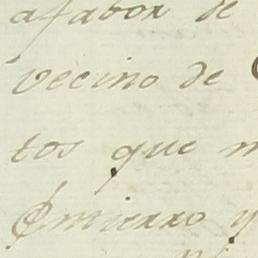 afabor de
vecino de
tos que
Entierro y